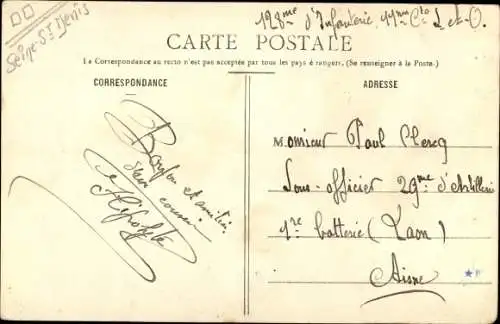 Seine-St Denis
128me d'Infanterie, 11me Cie L-et-O.
CARTE POSTALE
La Correspondance au recto n'est pas acceptée par tous les pays étrangers. (Se renseigner à la Poste.)
CORRESPONDANCE
ADRESSE
Bonjour et amitiés
d'un cousin
Hippolyte
Monsieur Paul Clercq
Sous-officier 29me d'Artillerie
1re batterie (Laon)
Aisne